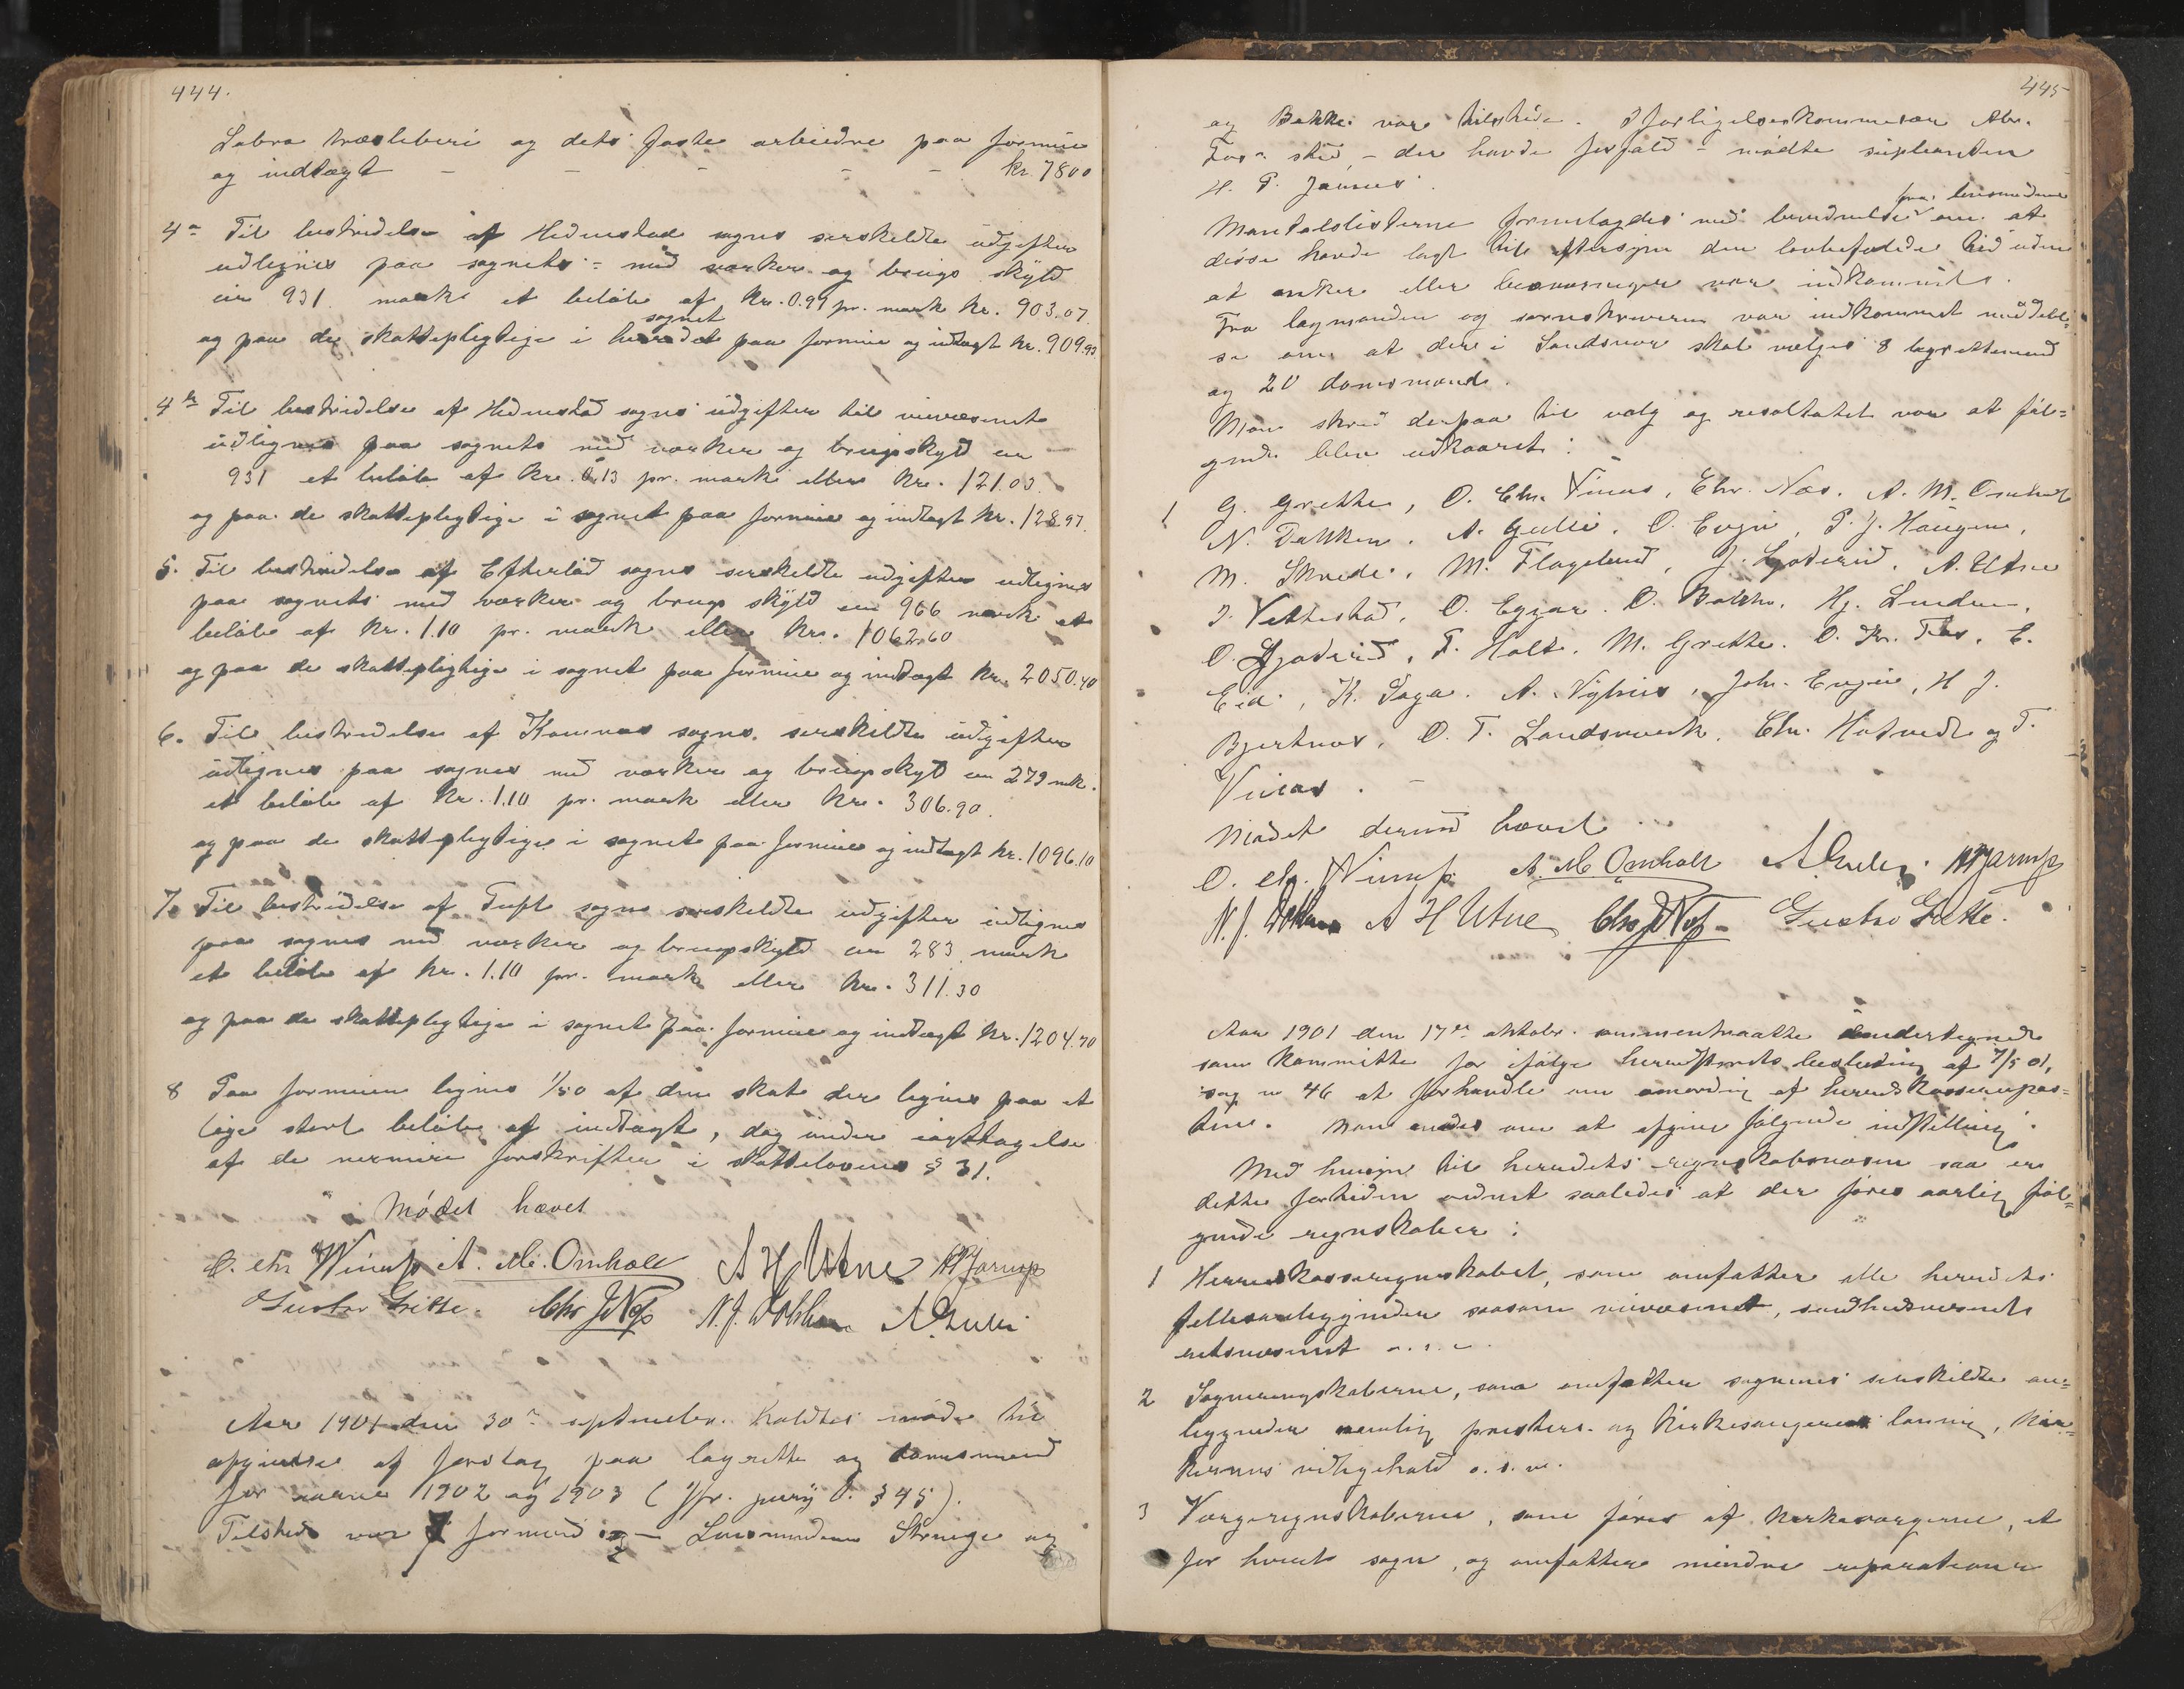 444.
Labro træsliberi og dets faste arbeidre paa formue
og indtægt - - - - - kr. 7800
4a Til bestridelse af Hedenstad sogns serskeldte udgifter
udlignes paa sognets - med værker og brugs skyld
er 931 mark et beløb af kr. 0.97 pr. mark kr. 903.07
sognet
og paa de skattepligtige i herredet paa formue og indtægt kr. 909.93
4b Til bestridelse af Hedenstad sogns udgifter til veivæsenet
udlignes paa sognets med værker og brugsskyld er
931 et beløb af kr. 0.13 pr. mark eller kr. 121.03
og paa de skattepligtige i sognet paa formue og indtægt kr. 128.97
5. Til bestridelse af Efteløt sogns serskeldte udgifter udlignes
paa sognets med værker og brugs skyld er 966 mark et
beløb af kr. 1.10 pr. mark eller kr. 1062.60
og paa de skattepligtige i sognet paa formue og indtægt kr. 2050.40
6. Til bestridelse af Komnes sogns serskildte udgifter
udlignes paa sognes med værker og brugsskyld er 279 mk.
et beløb af kr. 1.10 pr. mark eller kr. 306.90.
og paa de skattepligtige i sognet paa formue og indtægt kr. 1096.10
7. Til bestridelse af Tuft sogns serskeldte udgifter udlignes
paa sognes med værker og brugsskyld er 283 mark
et beløb af kr. 1.10 pr. mark eller kr. 311.30
og paa de skattepligtige i sognet paa formue og indtægt kr. 1204.70
8 Paa formuen lignes 1/50 af den skat der lignes paa et
lige stort beløb af indtægt, dog under iagttagelse
af de nærmere forskrifter i skatteloven § 31.
Mødet hævet
O. Chr Winnes A. M. Omholt A H Utne
Gustav Grette. Chr J Næs N. J. Dokken A Gulli
Aar 1901 den 30te september holdtes møde til
afgivelse af forslag paa lagrette og domsmænd
for aarene 1902 og 1903 (Jfr. jury l. § 45).
Tilstede var 7 formænd og - Lensmændene Skrenge og
445
og Bakke var tilstede. I forligelseskommissær Abr.
Foss sted, - der havde forfald - mødte supleanten
H. P. Jarnes.
fra lensmændene
Mantalslisterne fremlagdes med bevidnelse om at
disse havde lagt til eftersyn den lovbefalede tid uden
at anker eller besværinger var indkommet.
Fra lagmanden og sorenskriveren var indkommet meddelel-
se om at der i Sandsvær skal vælges 8 lagrettemænd
og 20 domsmænd.
Man skred derpaa til valg og resultatet var at føl-
gende blev udkaaret:
1 G. Grette, O. Chr. Vinnes, Chr. Næs. A. M. Omholt
N. Dokken. A. Gulli. O. Engen, P. J. Haugen.
M. Skrede. M. Flageland, J. A. Utne
I. Vettestad, O. O. Bakke. Hj. Lunden.
O. T. Holt. M. Grette. O. Kr. Foss. E.
Eid, K. Saga. A. Nyhus, Joh. Engen, H J.
Bjertnes. O. T. Landsverk. Chr. Hotvedt og T.
Vinnes. -
Mødet dermed hævet
O. Chr. Winnes A. M. Omholt A Gulli
N. J. Dokken A H Utne Chr J Næs Gustav Grette.
Aar 1901 den 17de oktobr. sammentraadte undertegnede
som kommitte for ifølge herredstyrets beslutning af 7/5 01,
sag no 46 at forhandle om omordning af herredskassererpos-
tene. Man enedes om at afgive følgende indstilling:
Med hensyn til herredets regnskabsvæsen saa er
dette fortiden ordnet saaledes at der føres aarlig føl-
gende regnskaber:
1 Herredskasseregnskabet, som omfatter alle herredets
fellesanliggender saasom veivæsenet, sundhedsvæsenet
retsvæsenet o. s. v.
2 Sogneregnskaberne, som omfatter sognenes serskildte an-
liggender nemlig presters og kirkesangeres lønning, kir-
kernes vedligehold o. s. v.
3 Vergeregnskaberne, som føres af kirkevergerne, et
for hvert sogn, og omfatter mindre reparationer